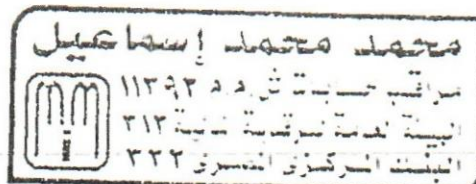 محمد محمد إسماعيل
مراقب حسابات ش.م.م ١١٣٩٣
الهيئة العامة للرقابة المالية ٣١٣
البنك المركزي المصرى ٣٣٢